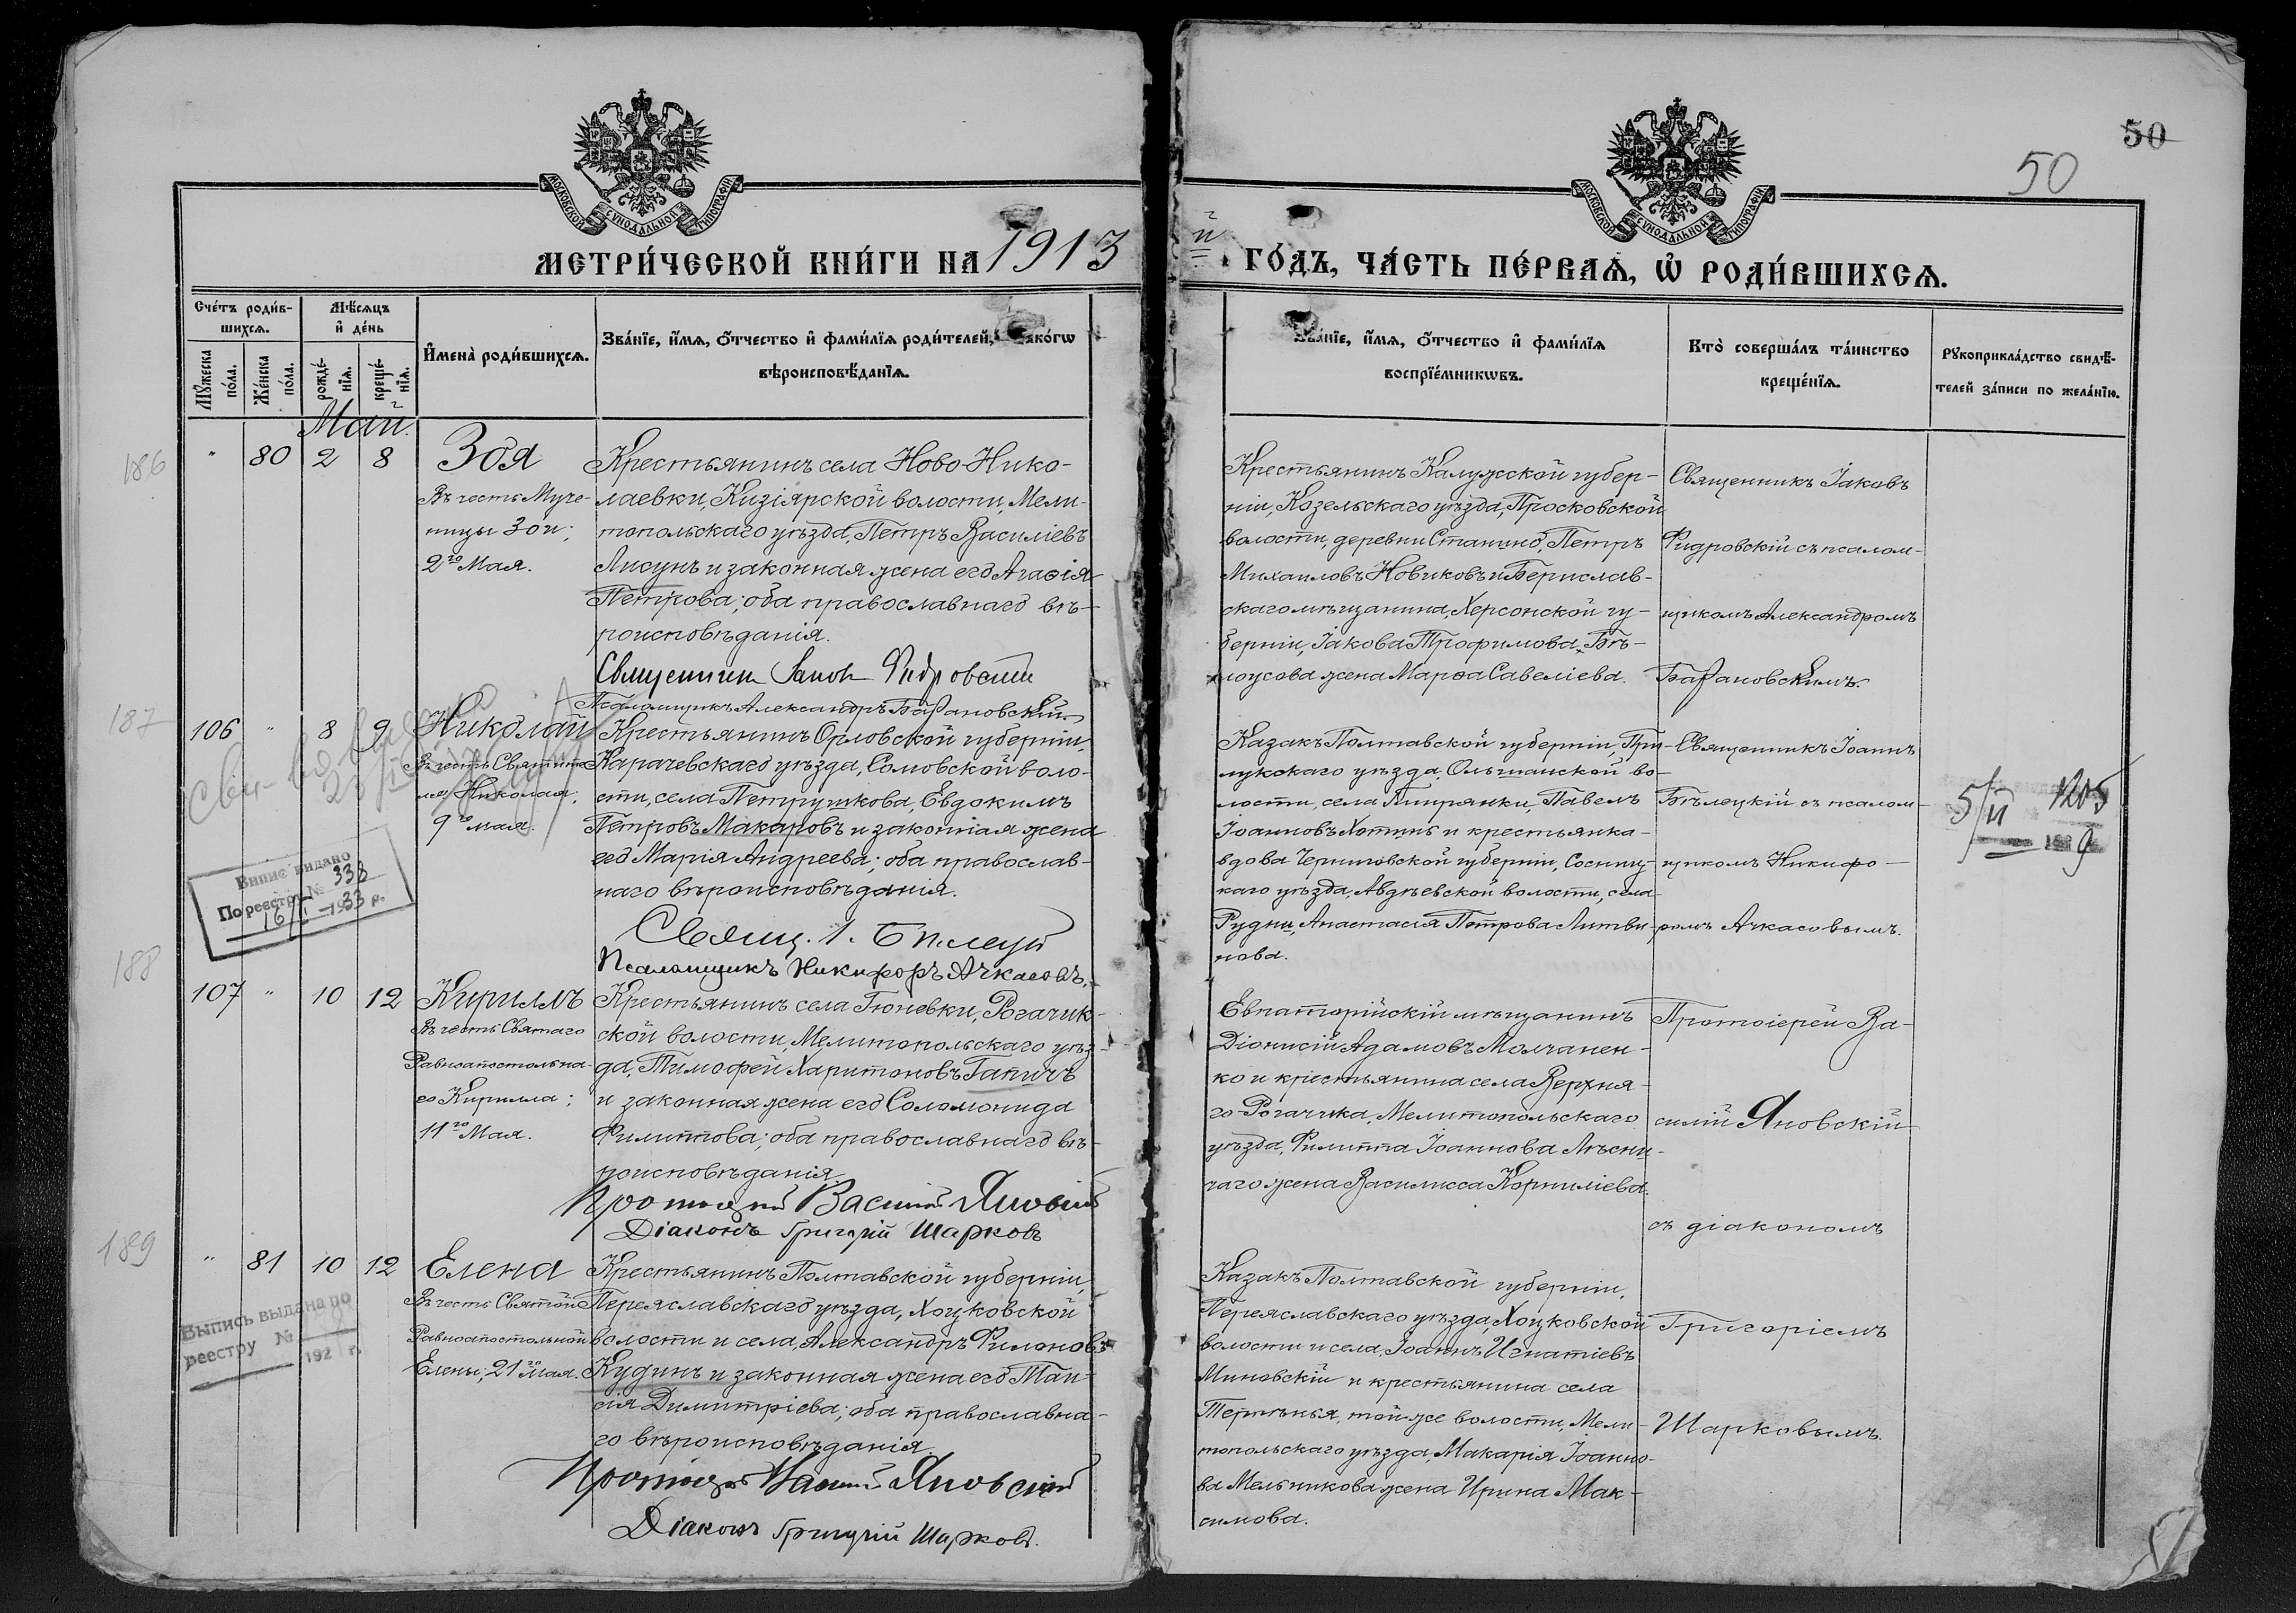 50
50
МОСКОВСКОЙ СѴНОДАЛЬНОЙ ТИПОГРАФІИ
МОСКОВСКОЙ СѴНОДАЛЬНОЙ ТИПОГРАФІИ
МЕТРИ́ЧЕСКОЙ КНИ́ГИ НА 1913
й ГО́ДЪ, ЧА́СТЬ ПЕ́РВАѦ, Ѡ҆ РОДИ́ВШИХСѦ.
Сче́тъ роди́в-
шихсѧ.
Мѣ́сѧцъ
и҆ де́нь
Мꙋ́жеска
по́ла.
Же́нска
по́ла.
рожде́-
нїѧ.
креще́-
нїѧ.
И҆мена̀ роди́вшихсѧ.
Зва́нїе, и҆́мѧ, ѻ҆́тчество и҆ фами́лїѧ роди́телей, и҆ како́гѡ
вѣроисповѣ́данїѧ.
Зва́нїе, и҆́мѧ, ѻ҆́тчество и҆ фами́лїѧ
воспрїе́мникѡвъ.
Кто̀ соверша́лъ та́инство
креще́нїѧ.
Рꙋкоприкла́дство свидѣ́-
телей за́писи по жела́нїю.
Май.
186
" 80 2 8
Зоя
Въ честь Муче-
ницы Зои;
2го Мая.
Крестьянинъ села Ново-Нико-
лаевки, Кизіярской волости, Мели-
топольскаго уѣзда, Петръ Василіевъ
Лисунъ и законная жена его Агаѳія
Петрова; оба православнаго вѣ-
роисповѣданія.
Священникъ Іаковъ Фидровскій
Псаломщикъ Александръ Барановскій
Крестьянинъ Калужской губер-
ніи, Козельскаго уѣзда, Просковской
волости, деревни Станино, Петръ
Михаиловъ Новиковъ и Берислав-
скаго мѣщанина, Херсонской гу-
берніи, Іакова Трофимова Бѣ-
лоусова жена Марѳа Савеліева.
Священникъ Іаковъ
Фидровскій съ псалом-
щикомъ Александромъ
Барановскимъ.
187
106 " 8 9
Николай
Въ честь Святите-
ля Николая;
9го мая.
Крестьянинъ Орловской губерніи,
Карачевскаго уѣзда, Сомовской воло-
сти, села Петрушкова, Евдокимъ
Петровъ Макаровъ и законная жена
его Марія Андреева; оба православ-
наго вѣроисповѣданія.
Свящ. І. Бѣлецкій
Псаломщикъ Никифоръ Ачкасовъ.
Випис видано
По реєстру № 338
16/I - 1933 р.
Казакъ Полтавской губерніи, При-
лукскаго уѣзда, Ольшанской во-
лости, села Ппирянки, Павелъ
Іоанновъ Хотинъ и крестьянка-
вдова Черниговской губерніи, Сосниц-
каго уѣзда, Авдѣевской волости, села
Рудни, Анастасія Петрова Литви-
нова.
Священникъ Іоаннъ
Бѣлецкій съ псалом-
щикомъ Никифо-
ромъ Ачкасовымъ.
5/II 1205
9
188
107 " 10 12
Кириллъ
Въ честь Святаго
Равноапостольна-
го Кирилла;
11го Мая.
Крестьянинъ села Гюневки, Рогачик-
ской волости, Мелитопольскаго уѣз-
да, Тимофей Харитоновъ Гапичъ
и законная жена его Соломонида
Филиппова; оба православнаго вѣ-
роисповѣданія.
Протоіерей Василій Яновскій
Діаконъ Григорій Шарковъ
Евпаторійскій мѣщанинъ
Діонисій Адамовъ Молчанен-
ко и крестьянина села Верхня-
го-Рогачика, Мелитопольскаго
уѣзда, Филиппа Іоаннова Лѣсни-
чаго жена Василисса Корниліева.
Протоіерей Ва-
силій Яновскій
съ діакономъ
189
" 81 10 12
Елена
Въ честь Святой
Равноапостольной
Елены; 21го Мая.
Крестьянинъ Полтавской губерніи,
Переяславскаго уѣзда, Хоцковской
волости и села, Александръ Филоновъ
Кудинъ и законная жена его Таи-
сія Димитріева; оба православна-
го вѣроисповѣданія.
Протоіерей Василій Яновскій
Діаконъ Григорій Шарковъ.
Выпись выдана по
реестру №
192 г.
Казакъ Полтавской губерніи,
Переяславскаго уѣзда, Хоцковской
волости и села, Іоаннъ Игнатіевъ
Миновскій и крестьянина села
Терпѣнья, той же волости, Мели-
топольскаго уѣзда, Макарія Іоанно-
ва Мельникова жена Ирина Мак-
симова.
Григоріемъ
Шарковымъ.